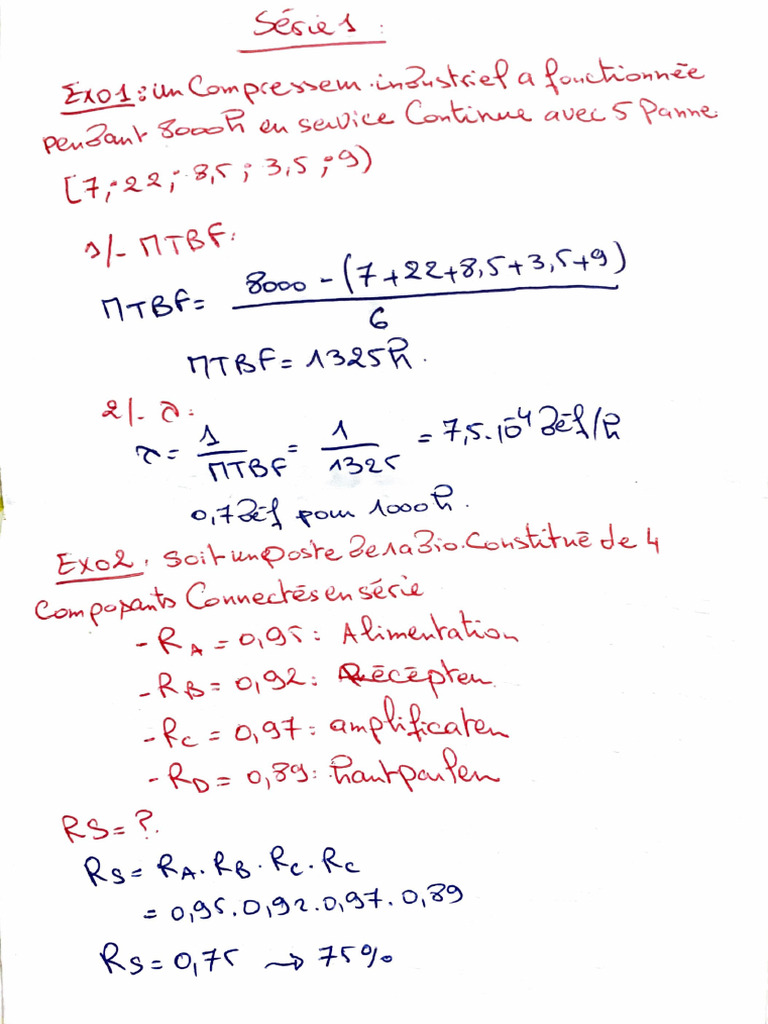 Série 1 :
Exo1 : un Compresseur industriel a fonctionnée
pendant 8000h en service Continue avec 5 Panne
[7 ; 22 ; 8,5 ; 3,5 ; 9)
1/- MTBF :
MTBF = (8000 - (7+22+8,5+3,5+9)) / 6
MTBF = 1325h.
2/- λ :
λ = 1/MTBF = 1/1325 = 7,5.10⁻⁴ déf/h
0,7 déf pour 1000h.
Exo2 . Soit un poste de radio. Constitué de 4
Composants Connectés en série
- R_A = 0,95 : Alimentation
- R_B = 0,92 : Récepteur
- R_C = 0,97 : amplificateur
- R_D = 0,89 : hautparleur
RS = ?
R_S = R_A . R_B . R_C . R_C
= 0,95 . 0,92 . 0,97 . 0,89
R_S = 0,75 → 75%